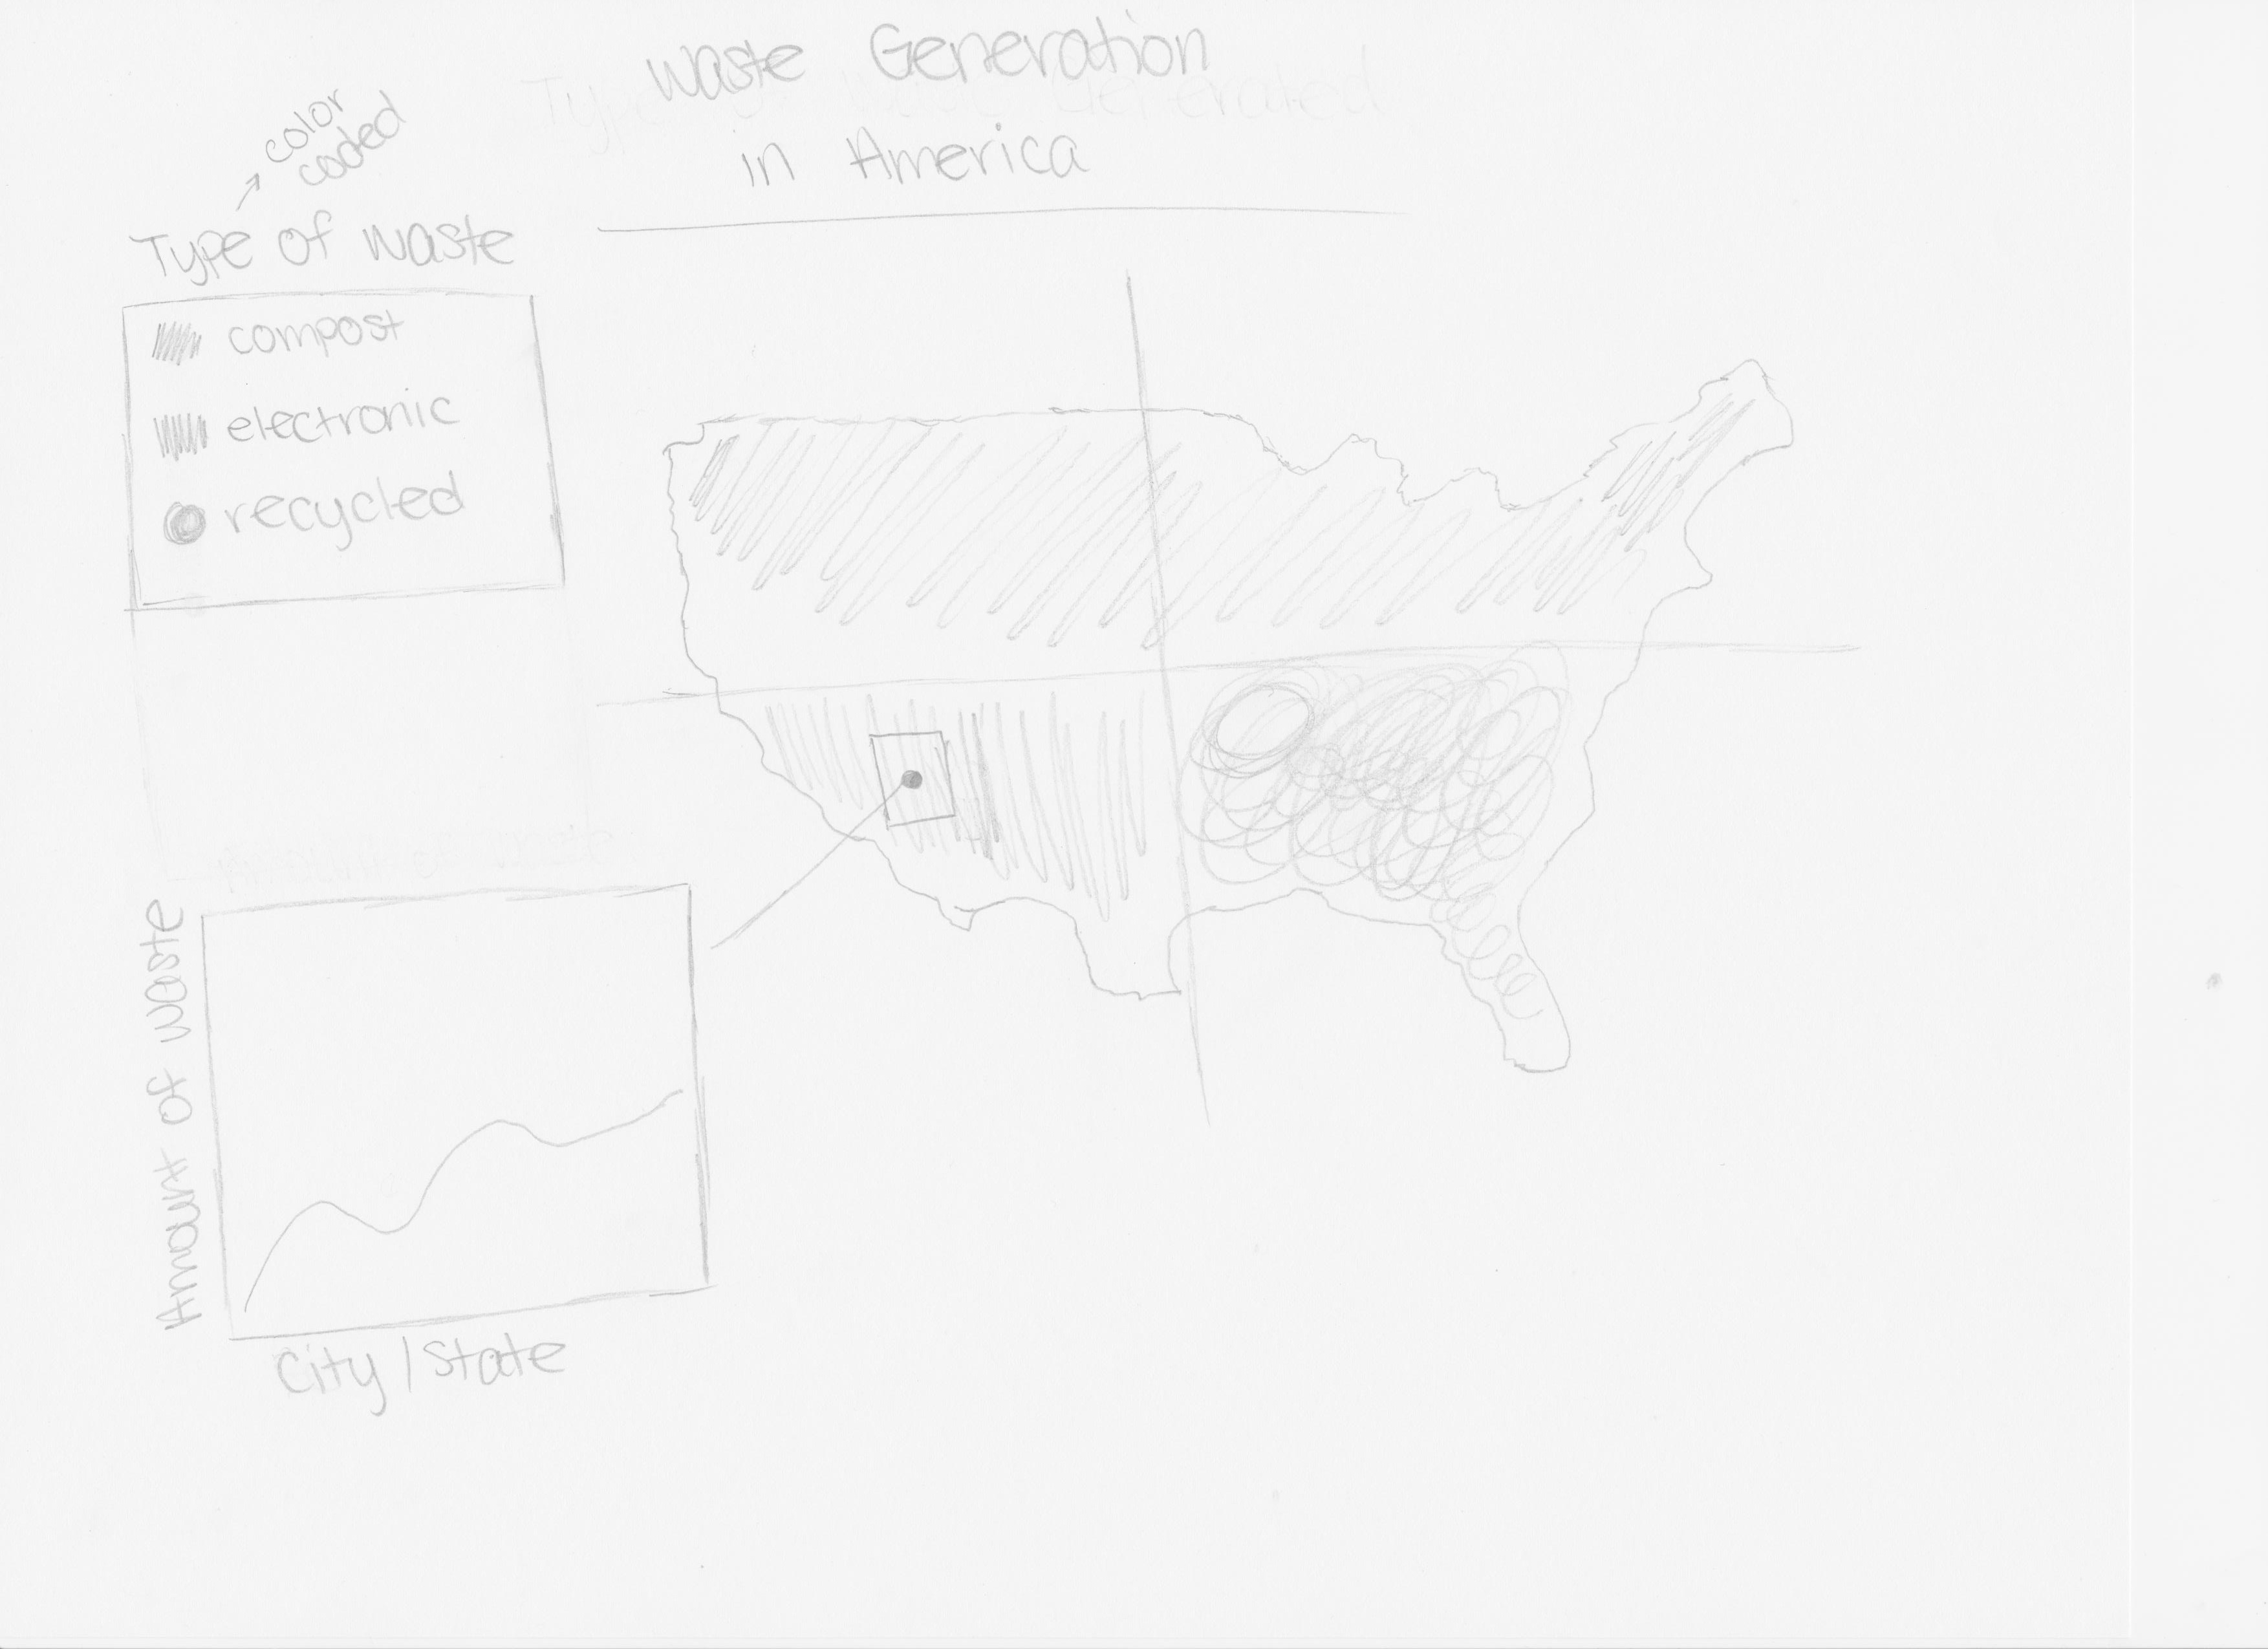 Waste Generation
in America
color
coded
Type of waste
compost
electronic
recycled
Amount of waste
City/State